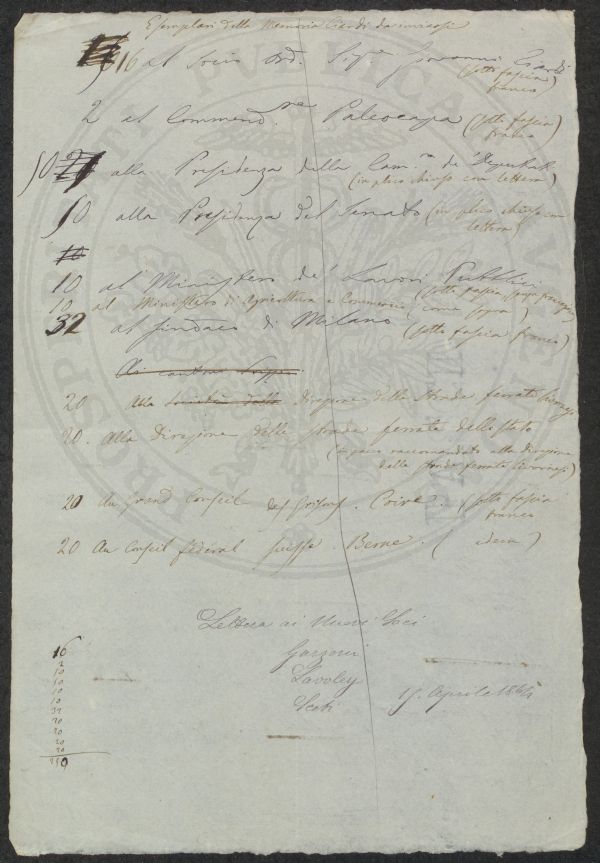 Esemplari della Memoria Ciardi da inviarsi
16 al Socio Ord. Sigr Giovanni Ciardi
(sotto fascia
franco)
2 al Commend.re Paleocapa (sotto fascia)
franco
50 alla Presidenza della Cam.ra de' Deputati
(in plico chiuso con lettera)
10 alla Presidenza del Senato (in plico chiuso con
lettera)
10
10 al Ministero de' Lavori Pubblici
(sotto fascia
10 al Ministero di Agricoltura e Commercio (come sopra)
32 al Sindaco di Milano (sotto fascia franco)
20 alla Direzione delle Strade ferrate livornesi
20. Alla Direzione delle Strade ferrate dello Stato
(in pacco raccomandato alla Direzione
delle Strade ferrate livornesi)
20 Au Grand Conseil des Grisons. Coire. (sotto fascia
franco
20 Au Conseil fédéral suisse. Berne. (idem)
Lettera ai Nuovi Soci
Garzoni
Lavoley
15. Aprile 1864
16
2
10
10
10
10
32
20
20
20
20
210
PROSPERITATI PUBLICAE